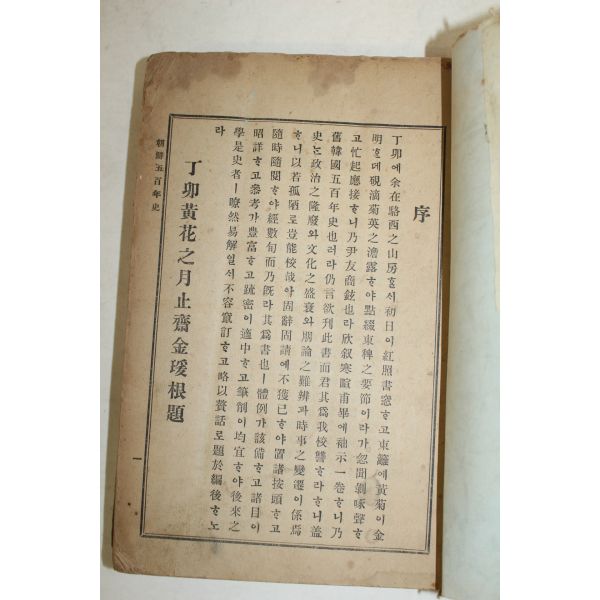 序
丁卯에余在駱西之山房ᄒᆞᆯᄉᆡ初日이紅照書窓ᄒᆞ고東籬에黃菊이金
明ᄒᆞᆫᄃᆡ硯滴菊英之澹露ᄒᆞ야點綴東稗之要節이라가忽聞剝啄聲ᄒᆞ
고忙起應接ᄒᆞ니乃尹友商鉉也라欣叙寒暄甫畢에袖示一卷ᄒᆞ니乃
舊韓國五百年史也러라仍言欲刊此書而君其爲我校讐ᄒᆞ라ᄒᆞ니盖
史ᄂᆞᆫ政治之隆廢와文化之盛衰와朋論之難辨과時事之變遷이係焉
ᄒᆞ니以若孤陋로豈能校哉아固辭固請에不獲已ᄒᆞ야置諸按頭ᄒᆞ고
隨時隨閱ᄒᆞ야經數旬而乃旣라其爲書也ㅣ體例가該備ᄒᆞ고諸目이
昭詳ᄒᆞ고叅考가豊富ᄒᆞ고疏密이適中ᄒᆞ고筆削이均宜ᄒᆞ야後來之
學是史者ㅣ瞭然易解일ᄉᆡ不容竄訂ᄒᆞ고略以贅話로題於編後ᄒᆞ노
라
丁卯黃花之月止齋金瑗根題
朝鮮五百年史
一